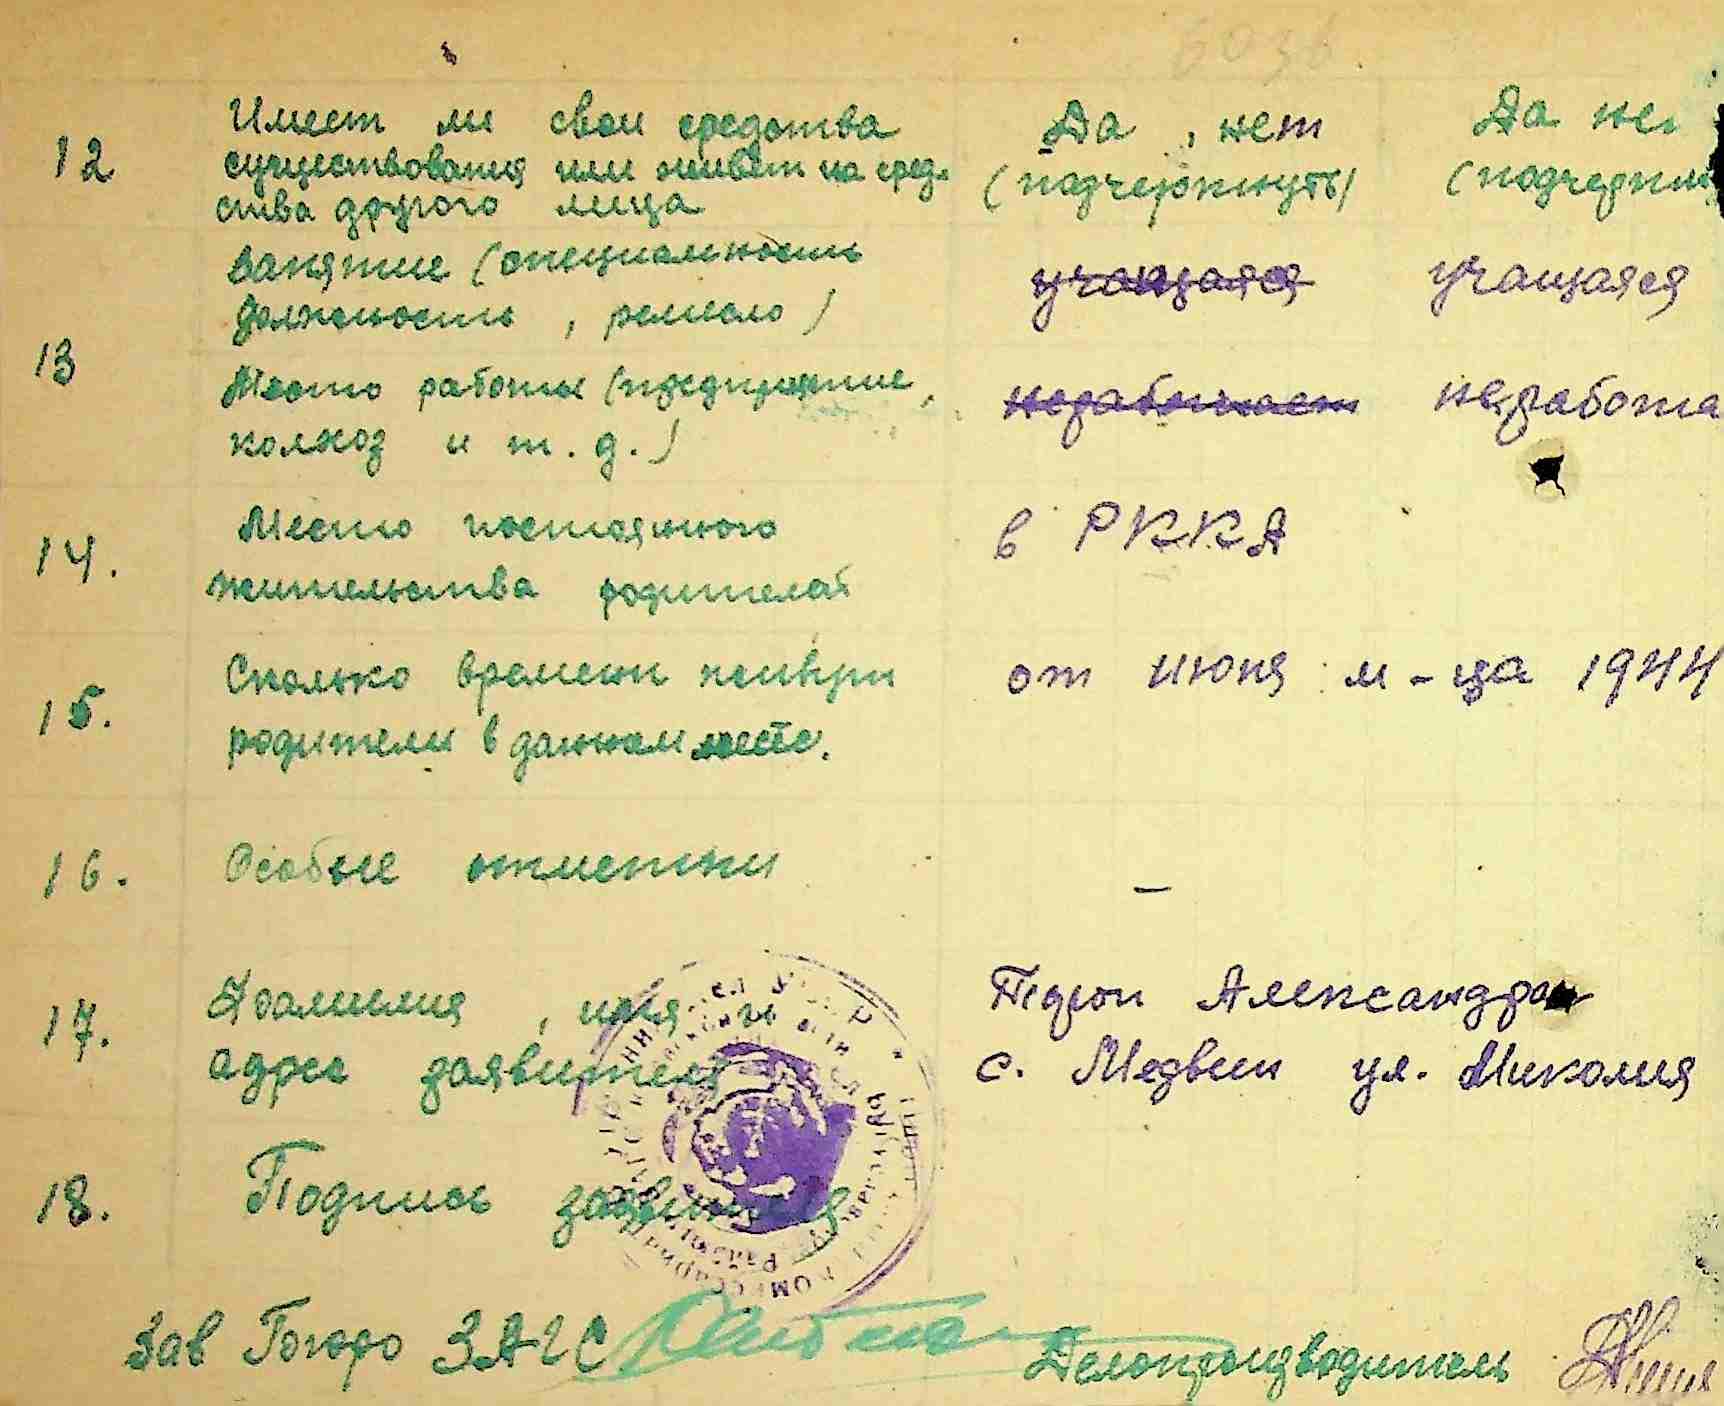 12 Имеет ли свои средства Да, нет Да не
существования или живет на сред- (подчеркнуть) (подчеркн
ства другого лица
занятие (специальность учащаяся учащаяся
должность, ремесло)
13
Место работы (предприятие, неработает неработа
колхоз и т.д.)
14. Место постоянного в РККА
жительства родителей
15. Сколько времени живут от июня м-ца 1944
родители в данном месте.
16. Особые отметки –
17. Фамилия, имя и Александра
адрес заявителя с. Медвин ул. Миколия
18. Подпись заявителя
Зав ЗАГС Делопроизводитель